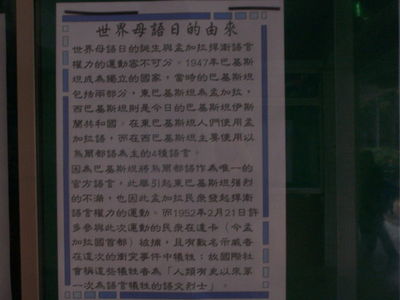 世界母語日的由來
世界母語日的誕生與孟加拉捍衛語言
權力的運動密不可分。1947年巴基斯
坦成為獨立的國家，當時的巴基斯坦
包括兩部分，東巴基斯坦為孟加拉，
西巴基斯坦則是今日的巴基斯坦伊斯
蘭共和國。在東巴基斯坦人們使用孟
加拉語，而在西巴基斯坦主要使用以
烏爾都語為主的4種語言。
因為巴基斯坦將烏爾都語作為唯一的
官方語言，此舉引起東巴基斯坦強烈
的不滿，也因此孟加拉民眾發起捍衛
語言權力的運動。而1952年2月21日許
多參與此次運動的民眾在達卡（今孟
加拉國首都）被捕，且有數名示威者
在這次的衝突事件中犧牲；故國際社
會稱這些犧牲者為「人類有史以來第
一次為語言犧牲的語文烈士」。